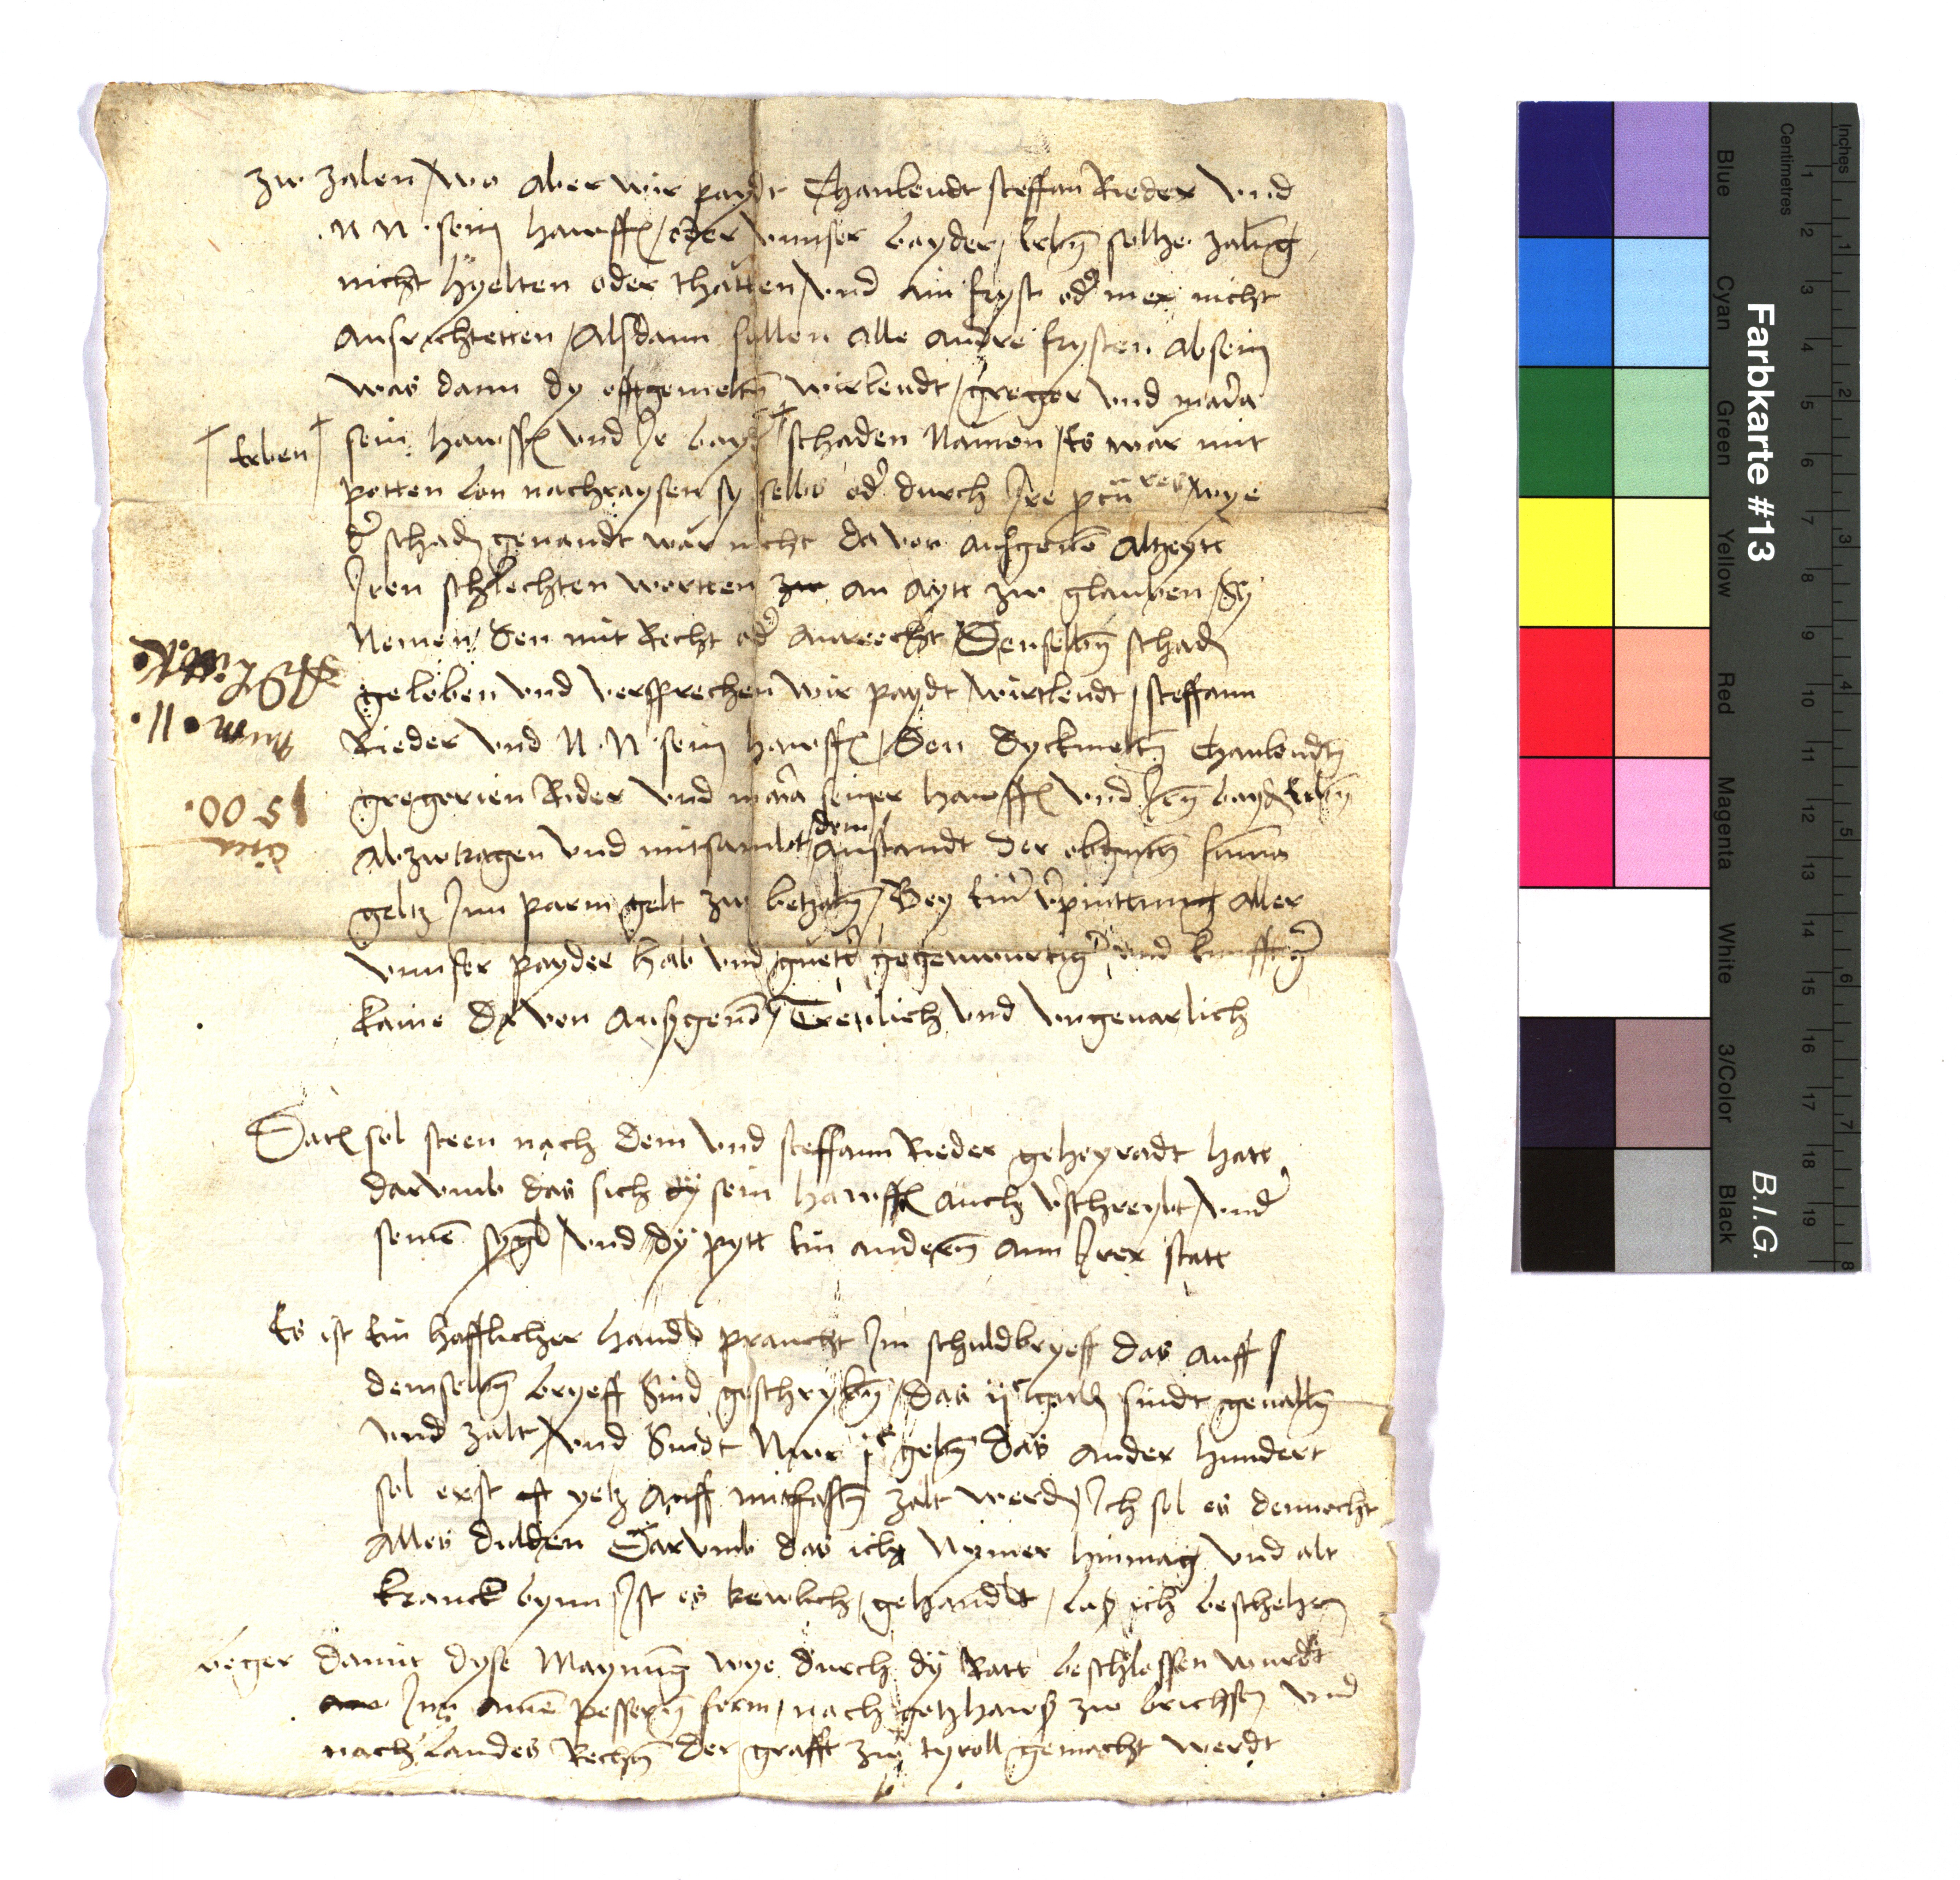 zw zalen / wo aber wir paydt Chanlendt steffan Rieder vnd
N N sein hawsf / oder vnnser bayder / erbn sollhe zalūg
nicht hyelten oder thatten / vnd ain fryst od mer nicht
ausrichtetten / Alsdann sollen alle andre frysten absein
was dann dy offtgemeltn wirlendt / greger vnd mara
sein hawsf vnd Ir bayd schaden Namen / Es war mit
† Erben †
potten lon nachraysen sy selbs od durch Ire pcu res / wye
d schadn genandt wär nicht da von ausgenō altzeytt
Iren schlechten wortten zw an aytt zw glauben / Sy
Nemen / den mit Recht od anreecht Denselbn schadn
geloben vnd versprechen wir paydt wirtlendt / steffann
Rieder vnd N. N sein hawsf / Den dyckmeltn Chanlendtn
gregorien Rider vnd mara seiner hawsf vnd Irn bayd Erbn
abzwtragen vnd mitsambt dem anstandt der obgmeltn suma
geltz Inn parm gelt zw betzaln / Bey ein vpinttnung aller
vnnser payder hab vnd guetter gegenwurtig vnd kunfftig
kaine da von ausgenō / Trewlich vnd vngeuarlich
num • 11.
circa
1500.
sol steen nach dem vnd steffann Rieder geheyradt hatt
darvmb das sich dy sein hawsf auch vschreybt / vnd
seinē sygl / vnd dy pytt ein andern ann Irer statt
Es ist ein hafflicher handl praucht Im schuldbryeff das auff
demselbn bryeff Sind geschrybn / das ijc guldn sindt geualln
vnd zalt / vnd Sindt Nwr jc gebn das ander hundert
sol erst yetz auff mitfastn zalt werdn Ich sol es dennocht
alles dulden Darvmb das ich Nymer hinmag vnd alt
kranck bynn / Ist es trewlich / gehandlt / las ich beschehen
beger damit dyse Maynung wye durch dy Ratt beschlossen wurdt
Inn ainē pessern form / nach gotzhaws zw brichsn vnd
nach landes Rechtn der grafft zw tyroll gemacht werdt
Farbkarte #13
B.I.G.
Inches
Centimetres
Blue
Cyan
Green
Yellow
Red
Magenta
White
3/Color
Black
1 2 3 4 5 6 7 8 9 10 11 12 13 14 15 16 17 18 19
1 2 3 4 5 6 7 8